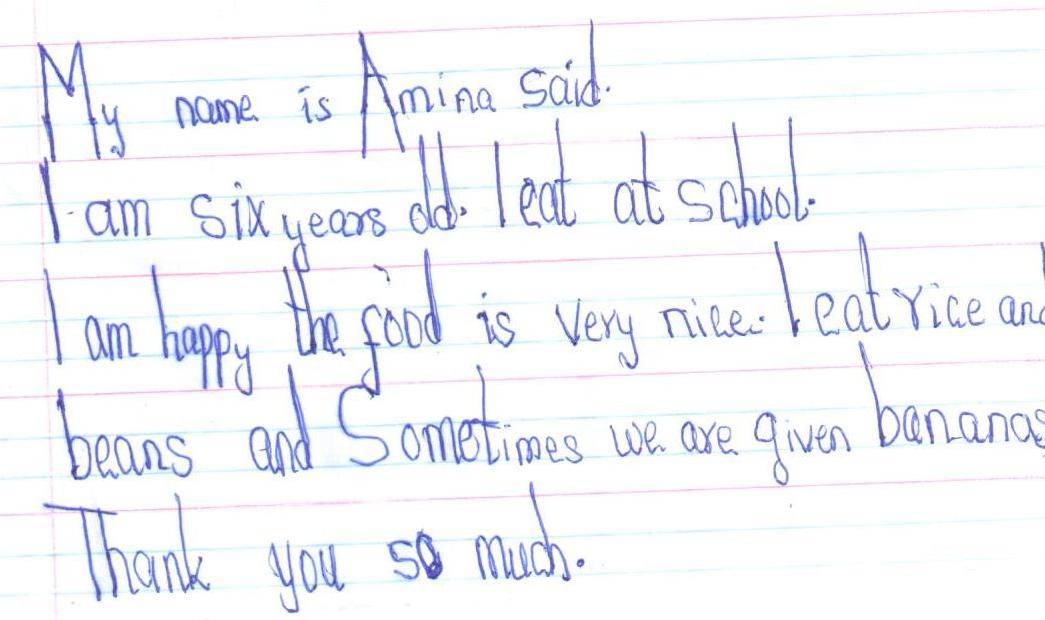 My name is Amina Said.
I am six years old. I eat at school.
I am happy the food is very nice. I eat rice and
beans and Sometimes we are given bananas
Thank you so much.